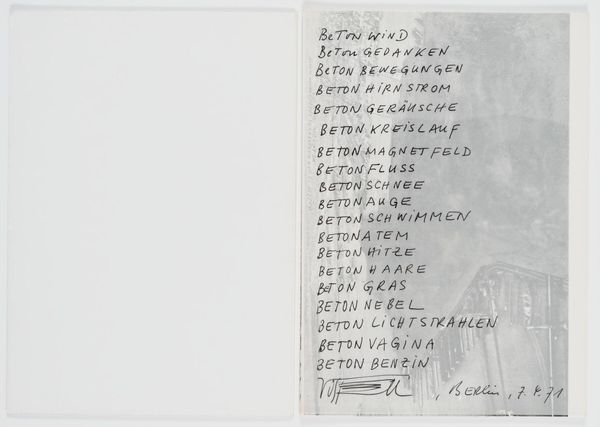 BETON WIND
BETON GEDANKEN
BETON BEWEGUNGEN
BETON HIRNSTROM
BETON GERÄUSCHE
BETON KREISLAUF
BETON MAGNETFELD
BETON FLUSS
BETON SCHNEE
BETON AUGE
BETON SCHWIMMEN
BETON ATEM
BETON HITZE
BETON HAARE
BETON GRAS
BETON NEBEL
BETON LICHTSTRAHLEN
BETON VAGINA
BETON BENZIN
, BERlin, 7.4.71